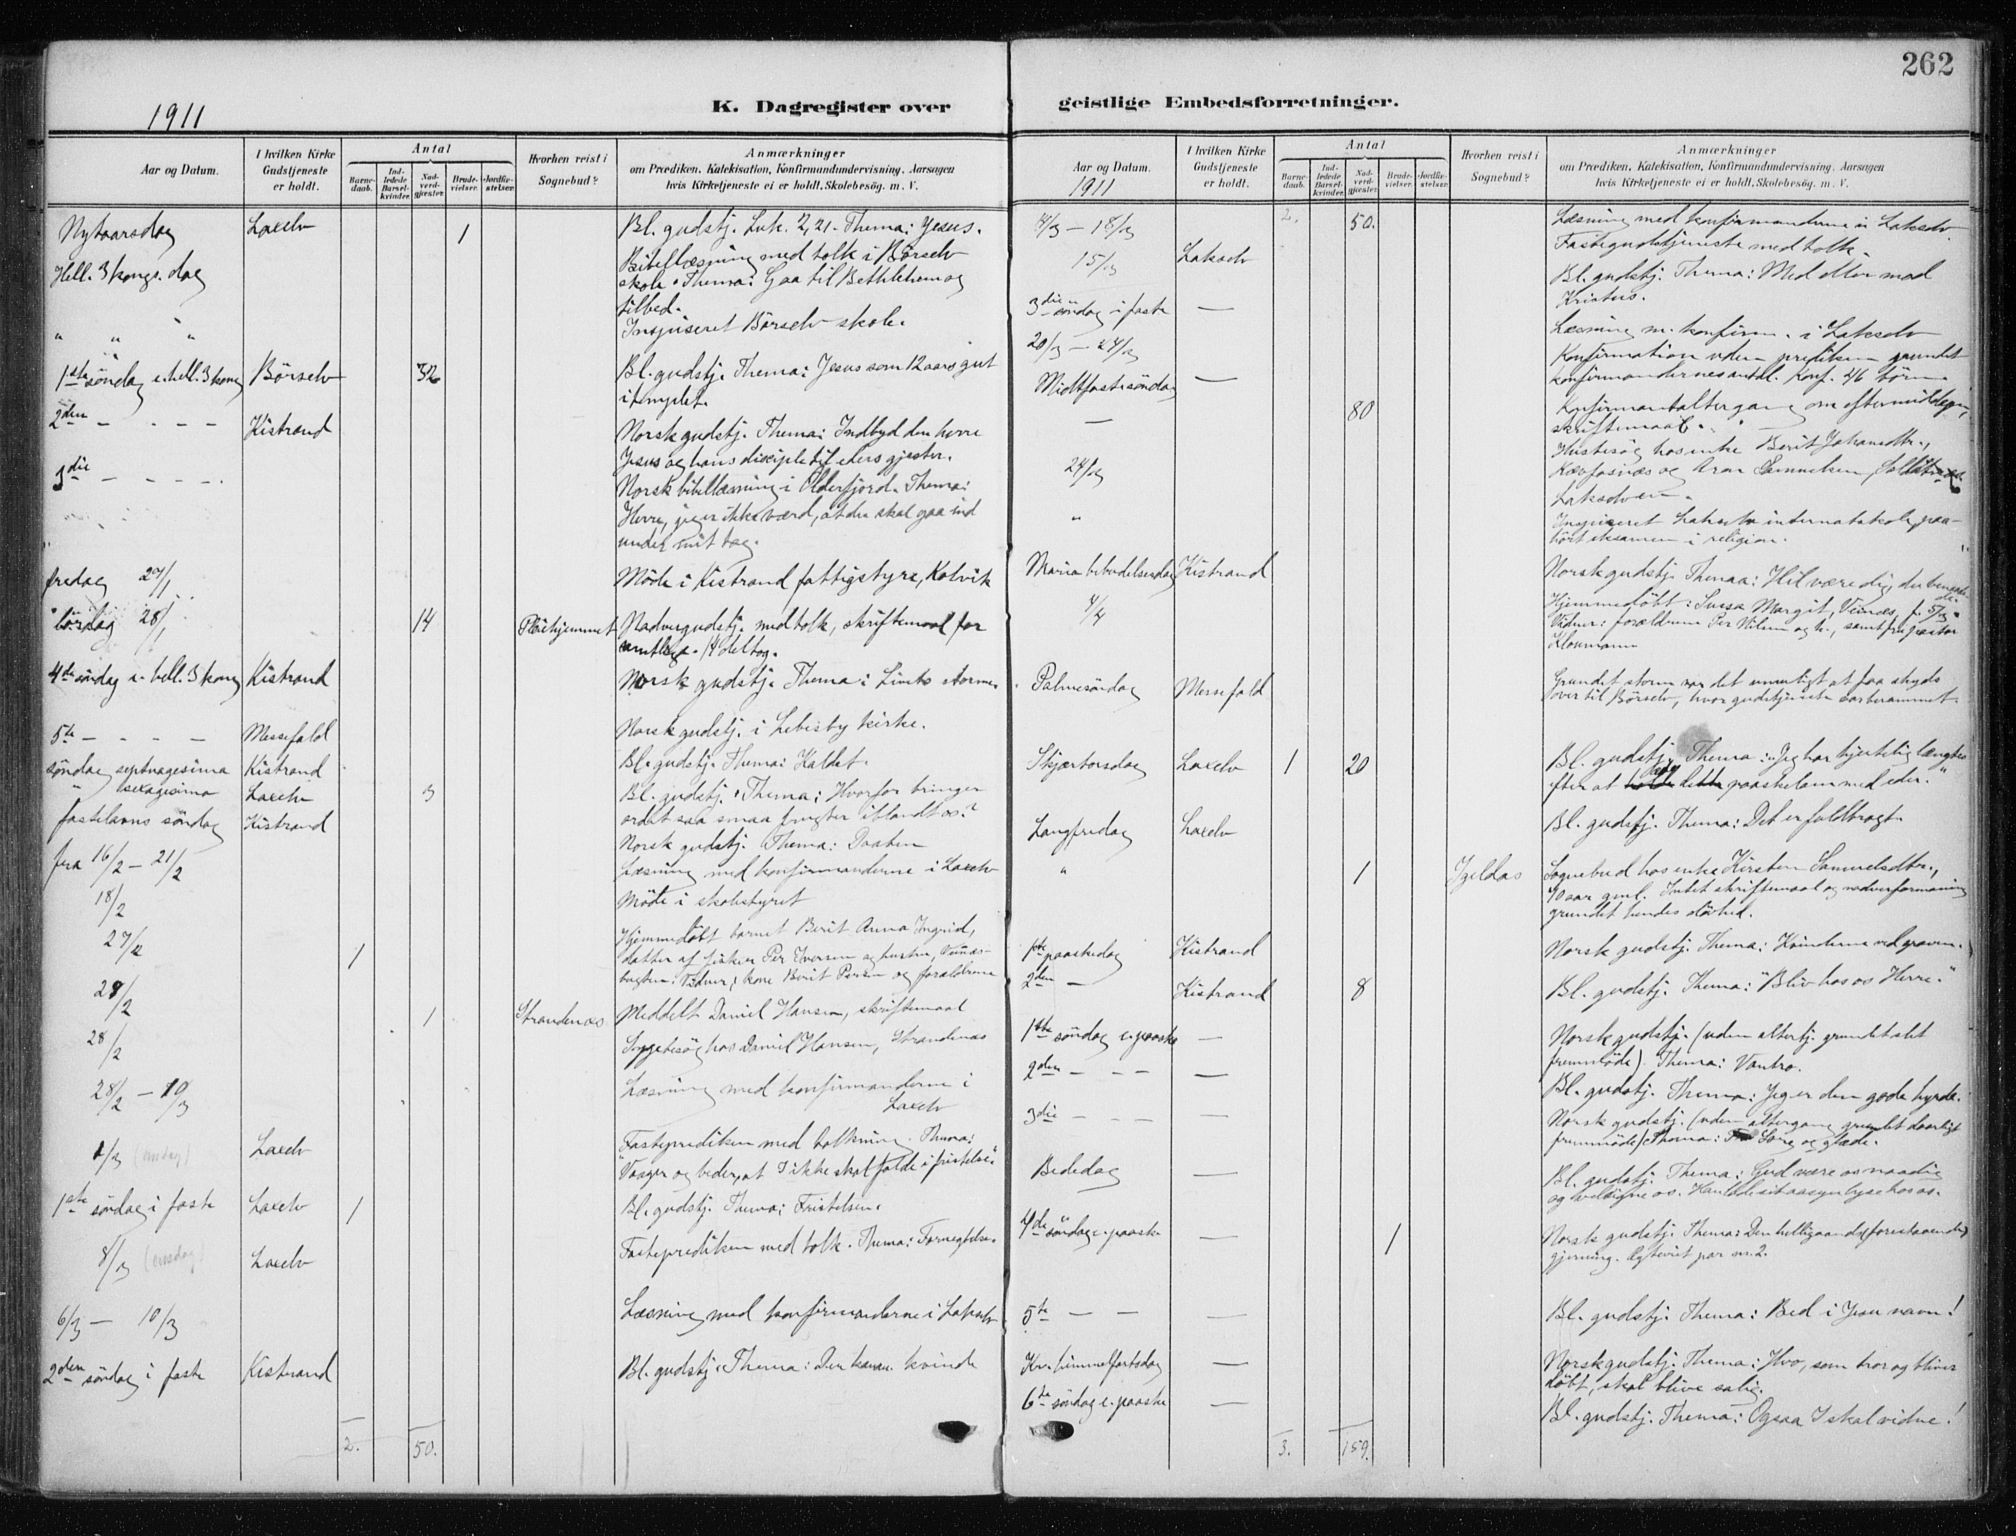 262
1911
K. Dagregister over
geistlige Embedsforretninger.
Aar og Datum.
I hvilken Kirke Gudstjeneste er holdt.
Antal
Barnedaab.
Indledede Barselkvinder.
Nadverdgjester.
Brudevielser.
Jordfæstelser.
Hvorhen reist i Sognebud?
Anmærkninger
om Prædiken, Katekisation, Konfirmandundervisning, Aarsagen
hvis Kirketjeneste ei er holdt, Skolebesøg, m. V.
Nytaarsdag Laxelv 1 Bl. gudstj. Luk. 2,21. Thema: Jesus.
Hell. 3 kongs. dag Bibellæsning med tolk i Börselv
skole. Thema: Gaa til Bethlehem og
tilbed.
" " " Inspiseret Börselv skole.
1ste söndag e. hell. 3 kong Börselv 32 Bl. gudstj. Thema: Jesus som 12 aars gut
i templet.
2den - - - - Kistrand Norsk gudstj. Thema: Indbyd den herre
Jesus og hans disciple til eders gjester.
3die - - - - Norsk bibellæsning i Olderfjord. Thema:
Herre, jeg er ikke værd, at du skal gaa ind
under mit tag.
fredag 27/1 Möde i Kistrand fattigstyre, Kolvik
lördag 28/1 14 Pleiehjemmet Nadvergudstj. med tolk, skriftemaal for
samtlige. 14 deltog.
4de söndag e. hell. 3 kong Kistrand Norsk gudstj. Thema: Livets storme.
5te - - - - Messefald Norsk gudstj. i Lebesby kirke.
söndag septuagesima Kistrand Bl. gudstj. Thema: Kaldet.
" sexagesima Laxelv 3 Bl. gudstj. Thema: Hvorfor bringer
ordet saa smaa frugter iblandt os?
fastelavns söndag Kistrand Norsk gudstj. Thema: Daaben
fra 16/2 - 21/2 Læsning med konfirmanderne i Laxelv
18/2 Möde i skolestyret
27/2 1 Hjemmedöbt barnet Berit Anna Ingrid,
datter af fisker Per Iversen og hustru,
Vidner: kone Berit Persen og forældrene
28/2 1 Strandenæs Meddelt Daniel Hansen, skriftemaal
28/2 Sygebesög hos Daniel Hansen, Strandenæs
28/2 - 10/3 Læsning med konfirmanderne i
Laxelv
1/3 (onsdag) Laxelv Fasteprediken med tolkning. Thema:
"Vaager og beder, at I ikke skal falde i fristelse".
1ste söndag i faste Laxelv 1 Bl. gudstj. Thema: Fristelsen.
8/3 (onsdag) Laxelv Fasteprediken med tolk. Thema: Fornegtelse.
6/3 - 10/3 Læsning med konfirmanderne i Lakselv
2den söndag i faste Kistrand Bl. gudstj. Thema: Den kanan. kvinde
2. 50.
Aar og Datum.
1911
I hvilken Kirke Gudstjeneste er holdt.
Antal
Barnedaab.
Indledede Barselkvinder.
Nadverdgjester.
Brudevielser.
Jordfæstelser.
Hvorhen reist i Sognebud?
Anmærkninger
om Prædiken, Katekisation, Konfirmandundervisning, Aarsagen
hvis Kirketjeneste ei er holdt, Skolebesøg, m. V.
2. 50.
14/3 - 18/3 Læsning med konfirmanderne i Lakselv
15/3 Lakselv Fastegudstjeneste med tolk.
3die söndag i faste — Bl. gudstj. Thema: Med eller mod
Kristus.
20/3 - 24/3 Læsning m. konfirm. i Lakselv
Midtfastesöndag — Konfirmation uden prediken grundet
konfirmandernes antal. Konf. 46 börn
— 80 Konfirmantaltergang om eftermiddagen,
skriftemaal.
24/3 Husbesög hos enke Berit Johansdtr.,
og Aron Samuelsen,
Lakselven.
" Inspiseret Lakselv internatskole, paahört eksamen i religion.
Maria bebudelsesdag Kistrand Norsk gudstj. Thema: Hil være dig, du benaadede
4/4 Hjemmedöbt: Sussa Margit, f. 5/3.
Vidner: forældrene Per Nilsen og h., samt fru pastor
Kloumann
Palmesöndag Messefald Grundet storm var det umuligt at faa skyds
over til Börselv, hvor gudstjeneste var berammet.
Skjærtorsdag Laxelv 1 20 Bl. gudstj. Thema: "Jeg har hjertelig længtes
efter at æde dette paaskelam med eder."
Langfredag Laxelv Bl. gudstj. Thema: Det er fuldbragt.
" 1 Igeldas Sognebud hos enke Kirsten Samuelsdtr.,
90 aar gml. Intet skriftemaal og nadverformaning
grundet hendes dövhed.
1ste paaskedag Kistrand Norsk gudstj. Thema: Kvinderne ved graven.
2den - Kistrand 8 Bl. gudstj. Thema: "Bliv hos os Herre."
1ste söndag e. paaske — Norsk gudstj. (uden altertj. grundet slet
fremmöde). Thema: Vantro.
2den - - - — Bl. gudstj. Thema: Jeg er den gode hyrde.
3die - - - — Norsk gudstj. (uden altergang grundet daarligt
fremmöde) Thema: Sorg og glæde.
Bededag — Bl. gudstj. Thema: Gud være os naadig
og velsigne os. Han lade sit aasyn lyse hos os.
4de söndag e. paaske — 1 Norsk gudstj. Thema: Den helligaands (forestaaende)
gjerning. Egteviet par nr. 2.
5te - - — Bl. gudstj. Thema: Bed i Jesu navn!
Kr. himmelfartsdag — Norsk gudstj. Thema: Hvo, som tror og bliver
döbt, skal blive salig.
6te söndag e. paaske — Bl. gudstj. Thema: Ogsaa I skal vidne!
3. 159.